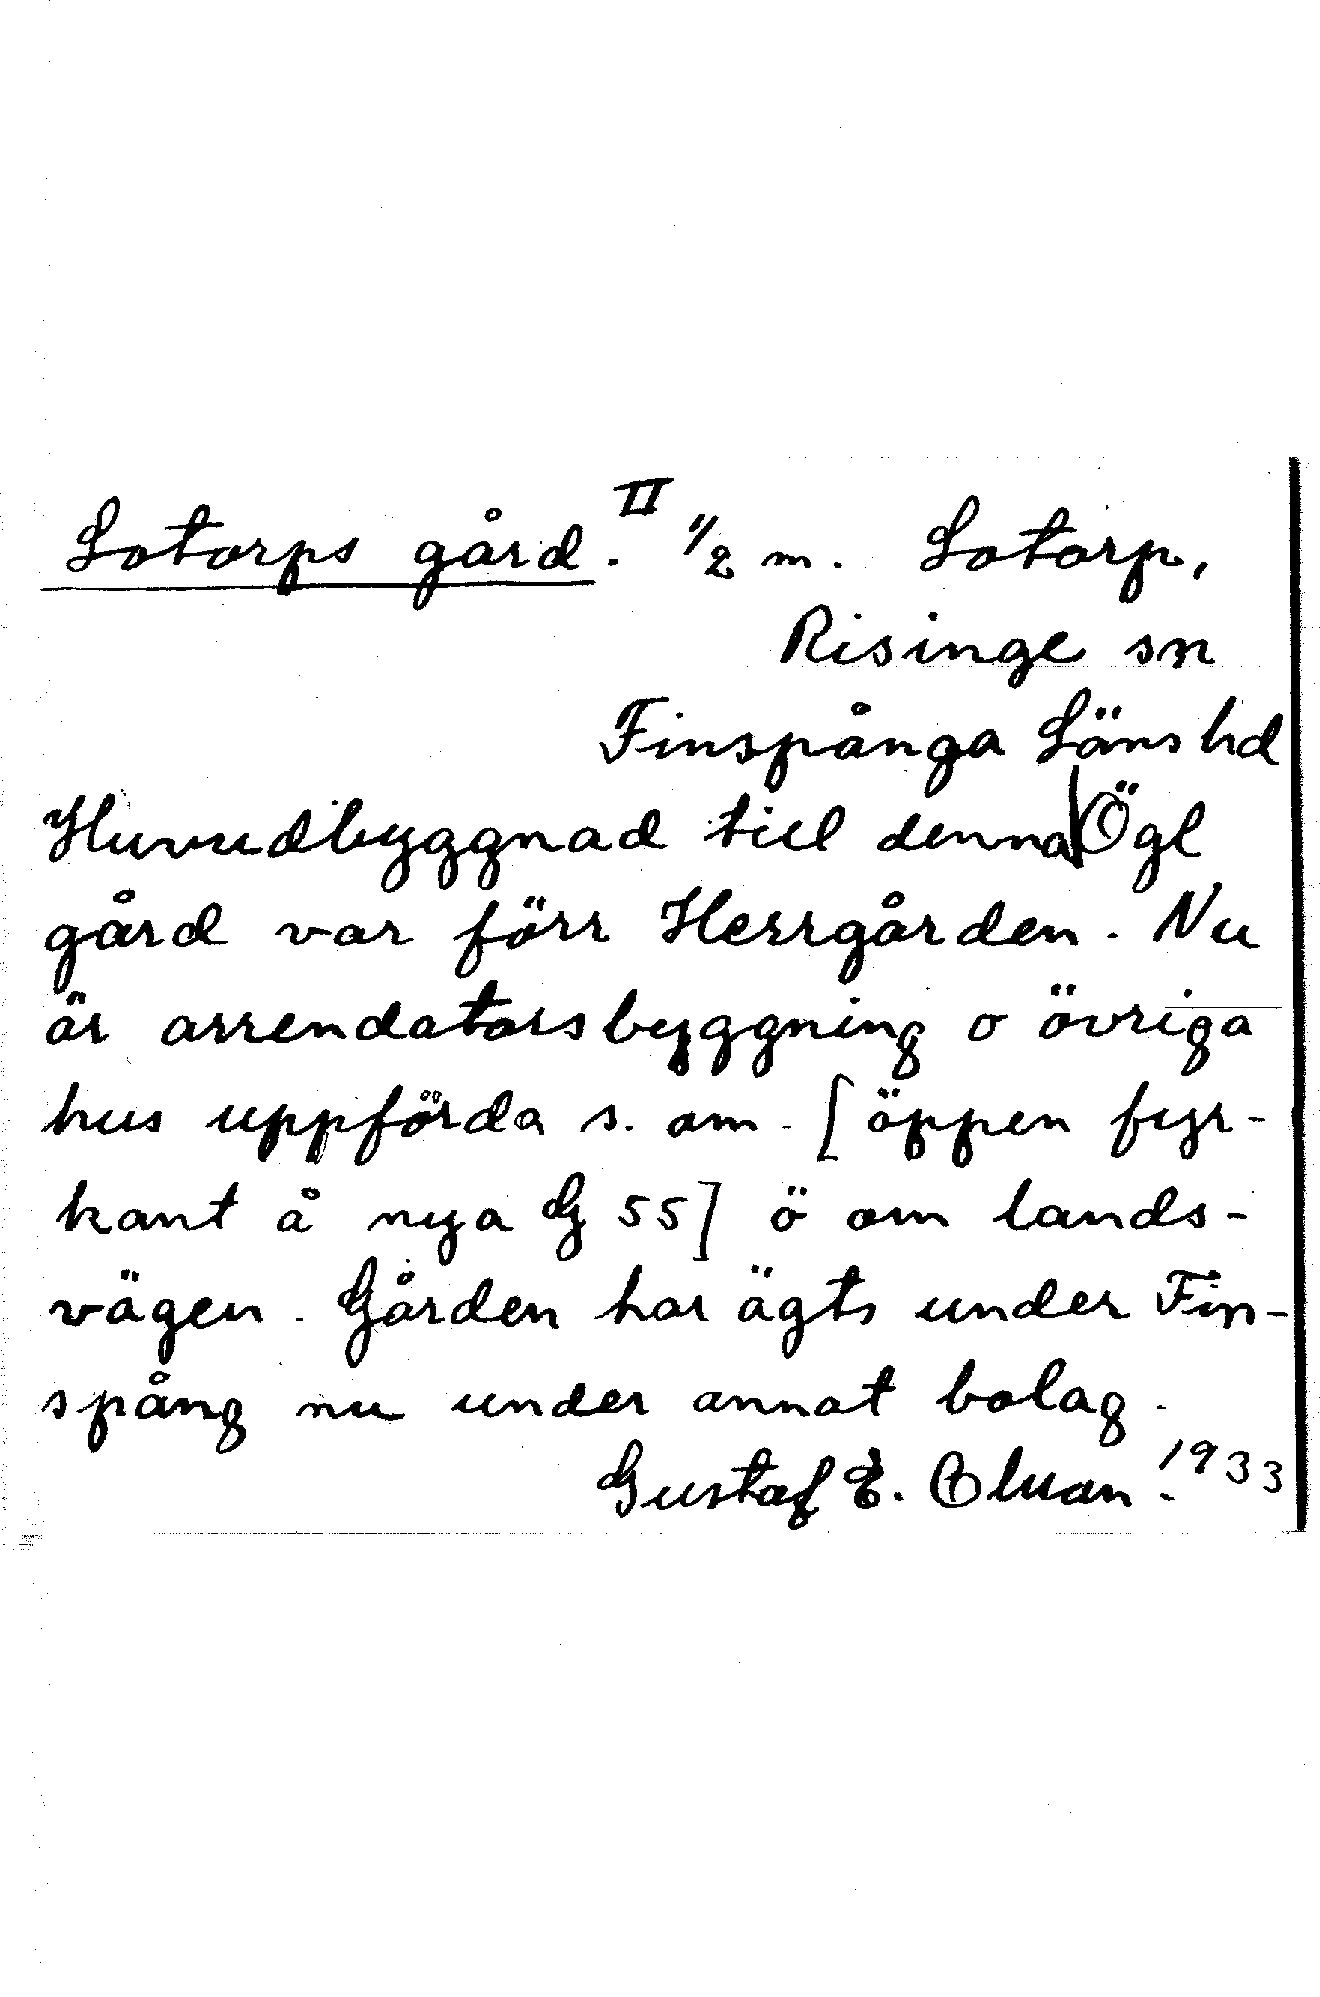 Lotorps gård. II 1/2 m. Lotorp,
Risinge sn
Finspånga Läns hd
Huvudbyggnad till denna Ögl
gård var förr Herrgården. Nu
är arrendatorsbyggning o övriga
hus uppförda s. om. [öppen fyr-
kant å nya G 55] ö om lands-
vägen. Gården har ägts under Fin-
spång nu under annat bolag.
Gustaf E. 1933